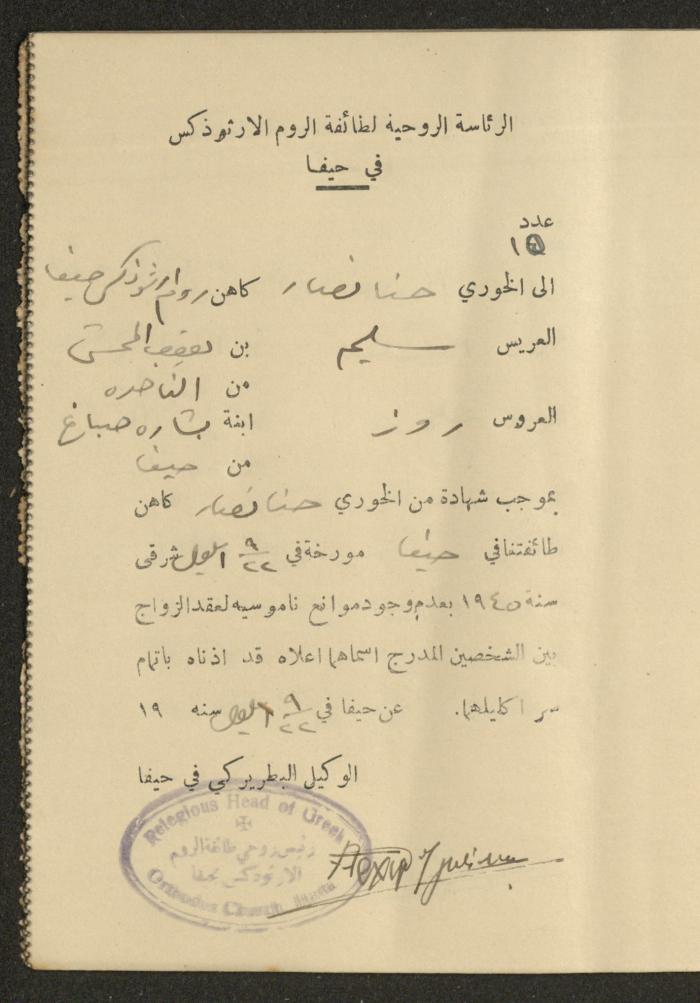 الرئاسة الروحية لطائفة الروم الارثوذكس
في حيفا
عدد
١٥
الى الخوري حنا نصار كاهن روم ارثوذكس حيفا
العريس سليم بن يعقوب
من الناصره
العروس روز ابنة بشاره صباغ
من حيفا
بموجب شهادة من الخوري حنا نصار كاهن
طائفتنا في حيفا مورخة في ٩/٢٢ ايلول شرقي
سنة ١٩٤٥ بعدم وجود موانع ناموسيه لعقد الزواج
بين الشخصين المدرج اسماهما اعلاه قد اذناه باتمام
سر اكليلهما. عن حيفا في ٩/٢٢ ايلول سنه ١٩
الوكيل البطريركي في حيفا
Relegious Head of Greek
رئيس روحي طائفة الروم
الارثوذكس بحيفا
Orthodox Church